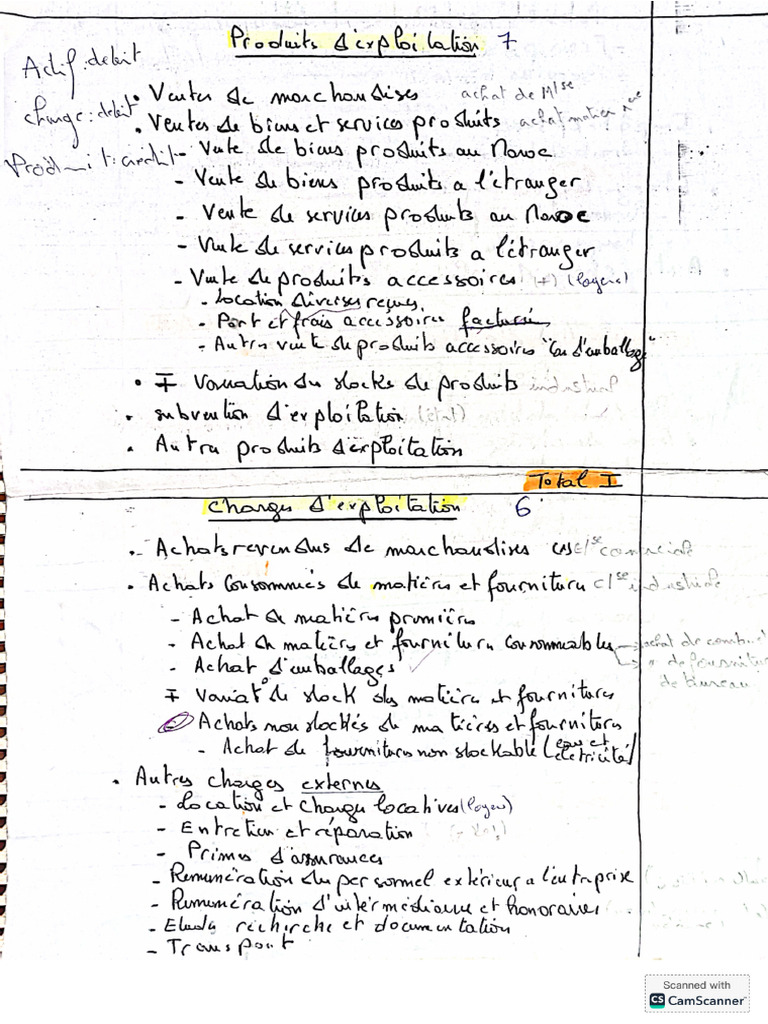 Produits d'exploitation 7
Actif : debit
charge : debit
Produit : credit
• Ventes de marchandises achat de M/se
• Ventes de biens et services produits achat matière 1ère
- Vente de biens produits au Maroc
- Vente de biens produits a l'étranger
- Vente de services produits au Maroc
- Vente de services produits a l'étranger
- Vente de produits accessoires (+) (loyers)
- Location diverses reçues
- Port et frais accessoires facturés
- Autres vente de produits accessoires "d'emballage"
• ∓ Variation du stocks de produits industrial
• subvention d'exploitation (état)
• Autre produits d'exploitation
Total I
Charges d'exploitation 6
• Achats revendus de marchandises E/se commerciale
• Achats consommés de matières et fourniture E/se industriele
- Achat de matières premières
- Achat de matières et fourniture consommables → achat de combust
→ " de fourniture de bureau
- Achat d'emballages
∓ Variat° de stock des matières et fournitures
- Achats non stockés de matières et fournitures
- Achat de fournitures non stockable (eau et életricité)
• Autres charges externes
- Location et charges locatives (loyers)
- Entretien et réparation
- Primes d'assurances
- Remunération du personnel extérieur a l'entreprise
- Remunération d'intérmédiaire et honoraires
- Etude recherche et documentation
- Transport
Scanned with
CS CamScanner